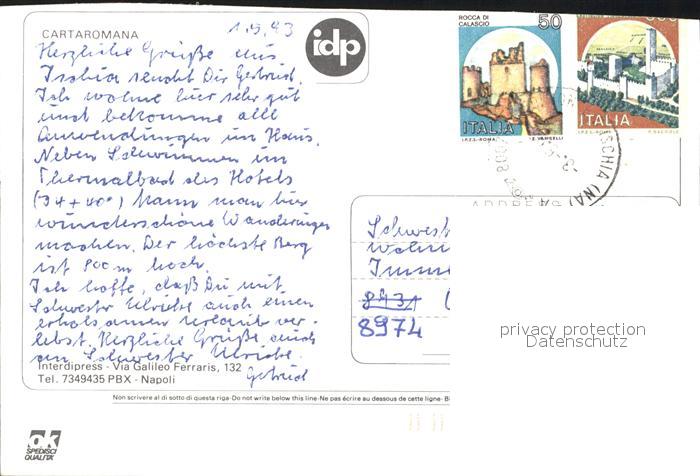 1.5.93
CARTAROMANA
idp
Herzliche Grüße aus
Ischia sendet Dir Gertrud.
Ich wohne hier sehr gut
und bekomme alle
Anwendungen im Haus.
Neben Schwimmen im
Thermalbad des Hotels
(34 + 40°) kann man hier
wunderschöne Wanderungen
machen. Der höchste Berg
ist 800m hoch.
Ich hoffe, daß Du mit
Schwester Ulrike auch einen
erholsamen Urlaub ver-
lebst. Herzliche Grüße auch
an Schwester Ulrike.
Gertrud
Interdipress - Via Galileo Ferraris, 132
Tel. 7349435 PBX - Napoli
Non scrivere al di sotto di questa riga-Do not write below this line-Ne pas écrire au dessous de cette ligne-
ok
SPEDISCI
QUALITÀ
ROCCA DI
CALASCIO
50
ITALIA
I.P.Z.S.-ROMA
E. VANGELLI
ITALIA
I.P.Z.S.-ROMA
ISCHIA (NA)
Schwest
wohn
Imm
8974
privacy protection
Datenschutz